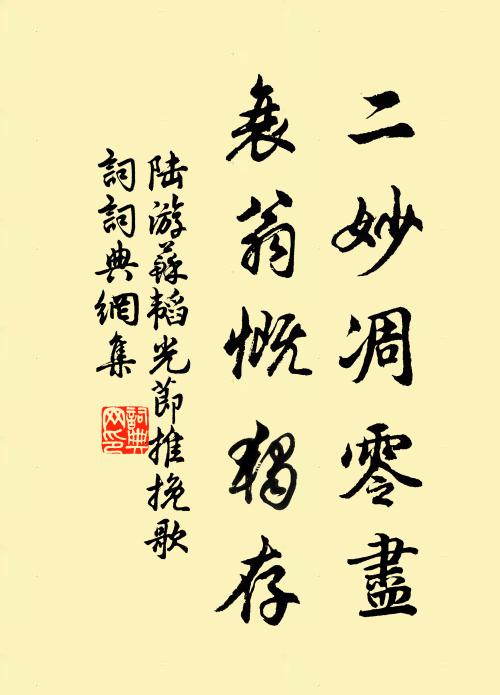 二妙凋零盡
衰翁慨獨存
陸游蘇韜光節推挽歌
詞詞典網集
詞典網印